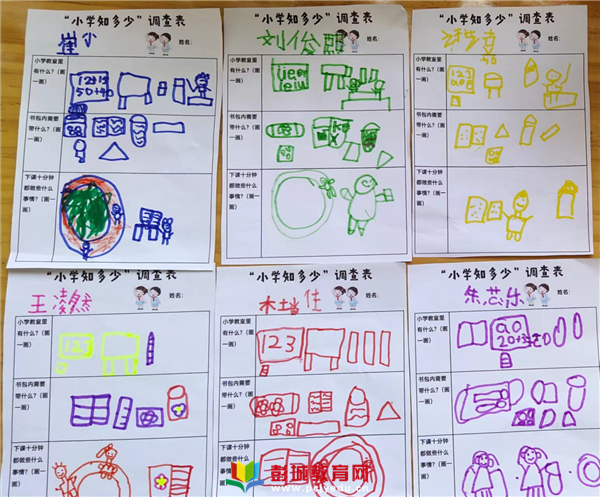 “小学知多少”调查表
姓名：
小学教室里
有什么？（画
一画）
书包内需要
带什么？（画一
画）
下课十分钟
都做些什么
事情？（画一
画）
“小学知多少”调查表
刘俊
姓名：
小学教室里
有什么？（画
一画）
书包内需要
带什么？（画一
画）
下课十分钟
都做些什么
事情？（画一
画）
“小学知多少”调查表
姓名：
小学教室里
有什么？（画
一画）
123
书包内需要
带什么？（画一
画）
下课十分钟
都做些什么
事情？（画一
画）
“小学知多少”调查表
王凌然
姓名：
小学教室里
有什么？（画
一画）
123
书包内需要
带什么？（画一
画）
下课十分钟
都做些什么
事情？（画一
画）
“小学知多少”调查表
佳
姓名：
小学教室里
有什么？（画
一画）
123
书包内需要
带什么？（画一
画）
下课十分钟
都做些什么
事情？（画一
画）
“小学知多少”调查表
朱芯乐
姓名：
小学教室里
有什么？（画
一画）
书包内需要
带什么？（画一
画）
下课十分钟
都做些什么
事情？（画一
画）
彭珈教育网